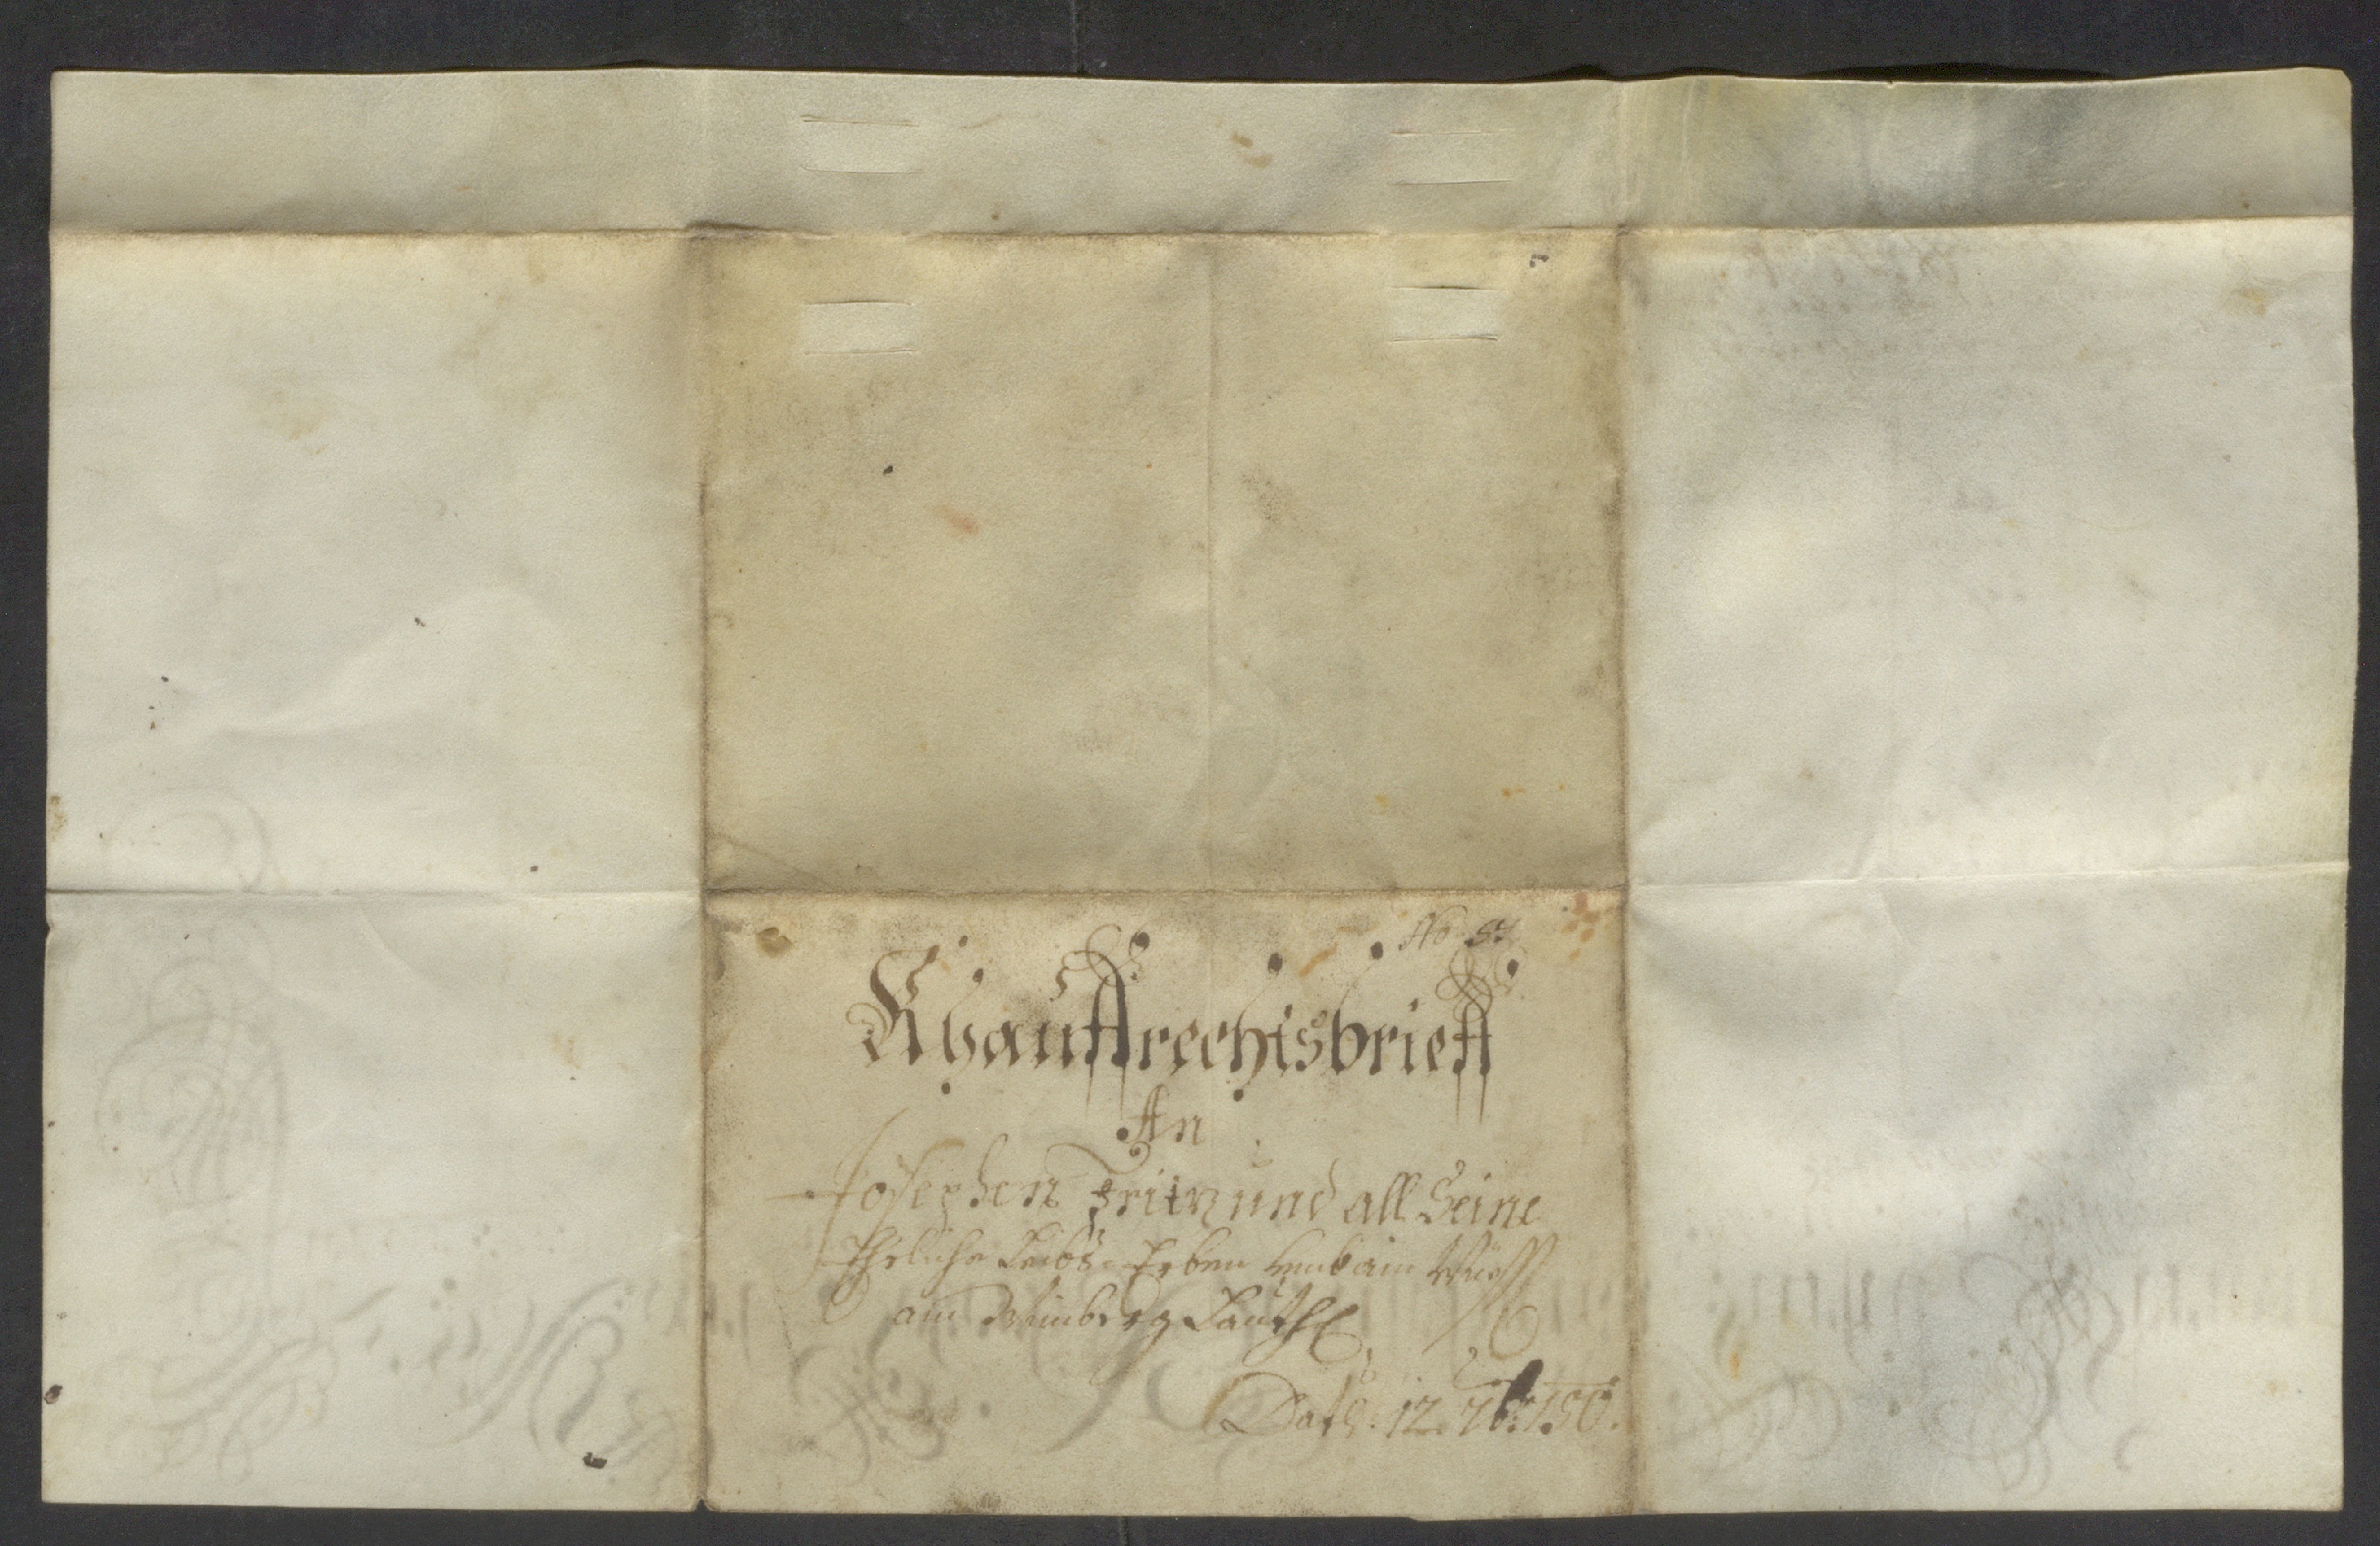 No 57
Khauffrechtsbrieff
An
Josephen Fritz und all Seine
Ehrliche Leibs-Erben umb ain
am Weinberg
Dat: 12. 7br: 750.